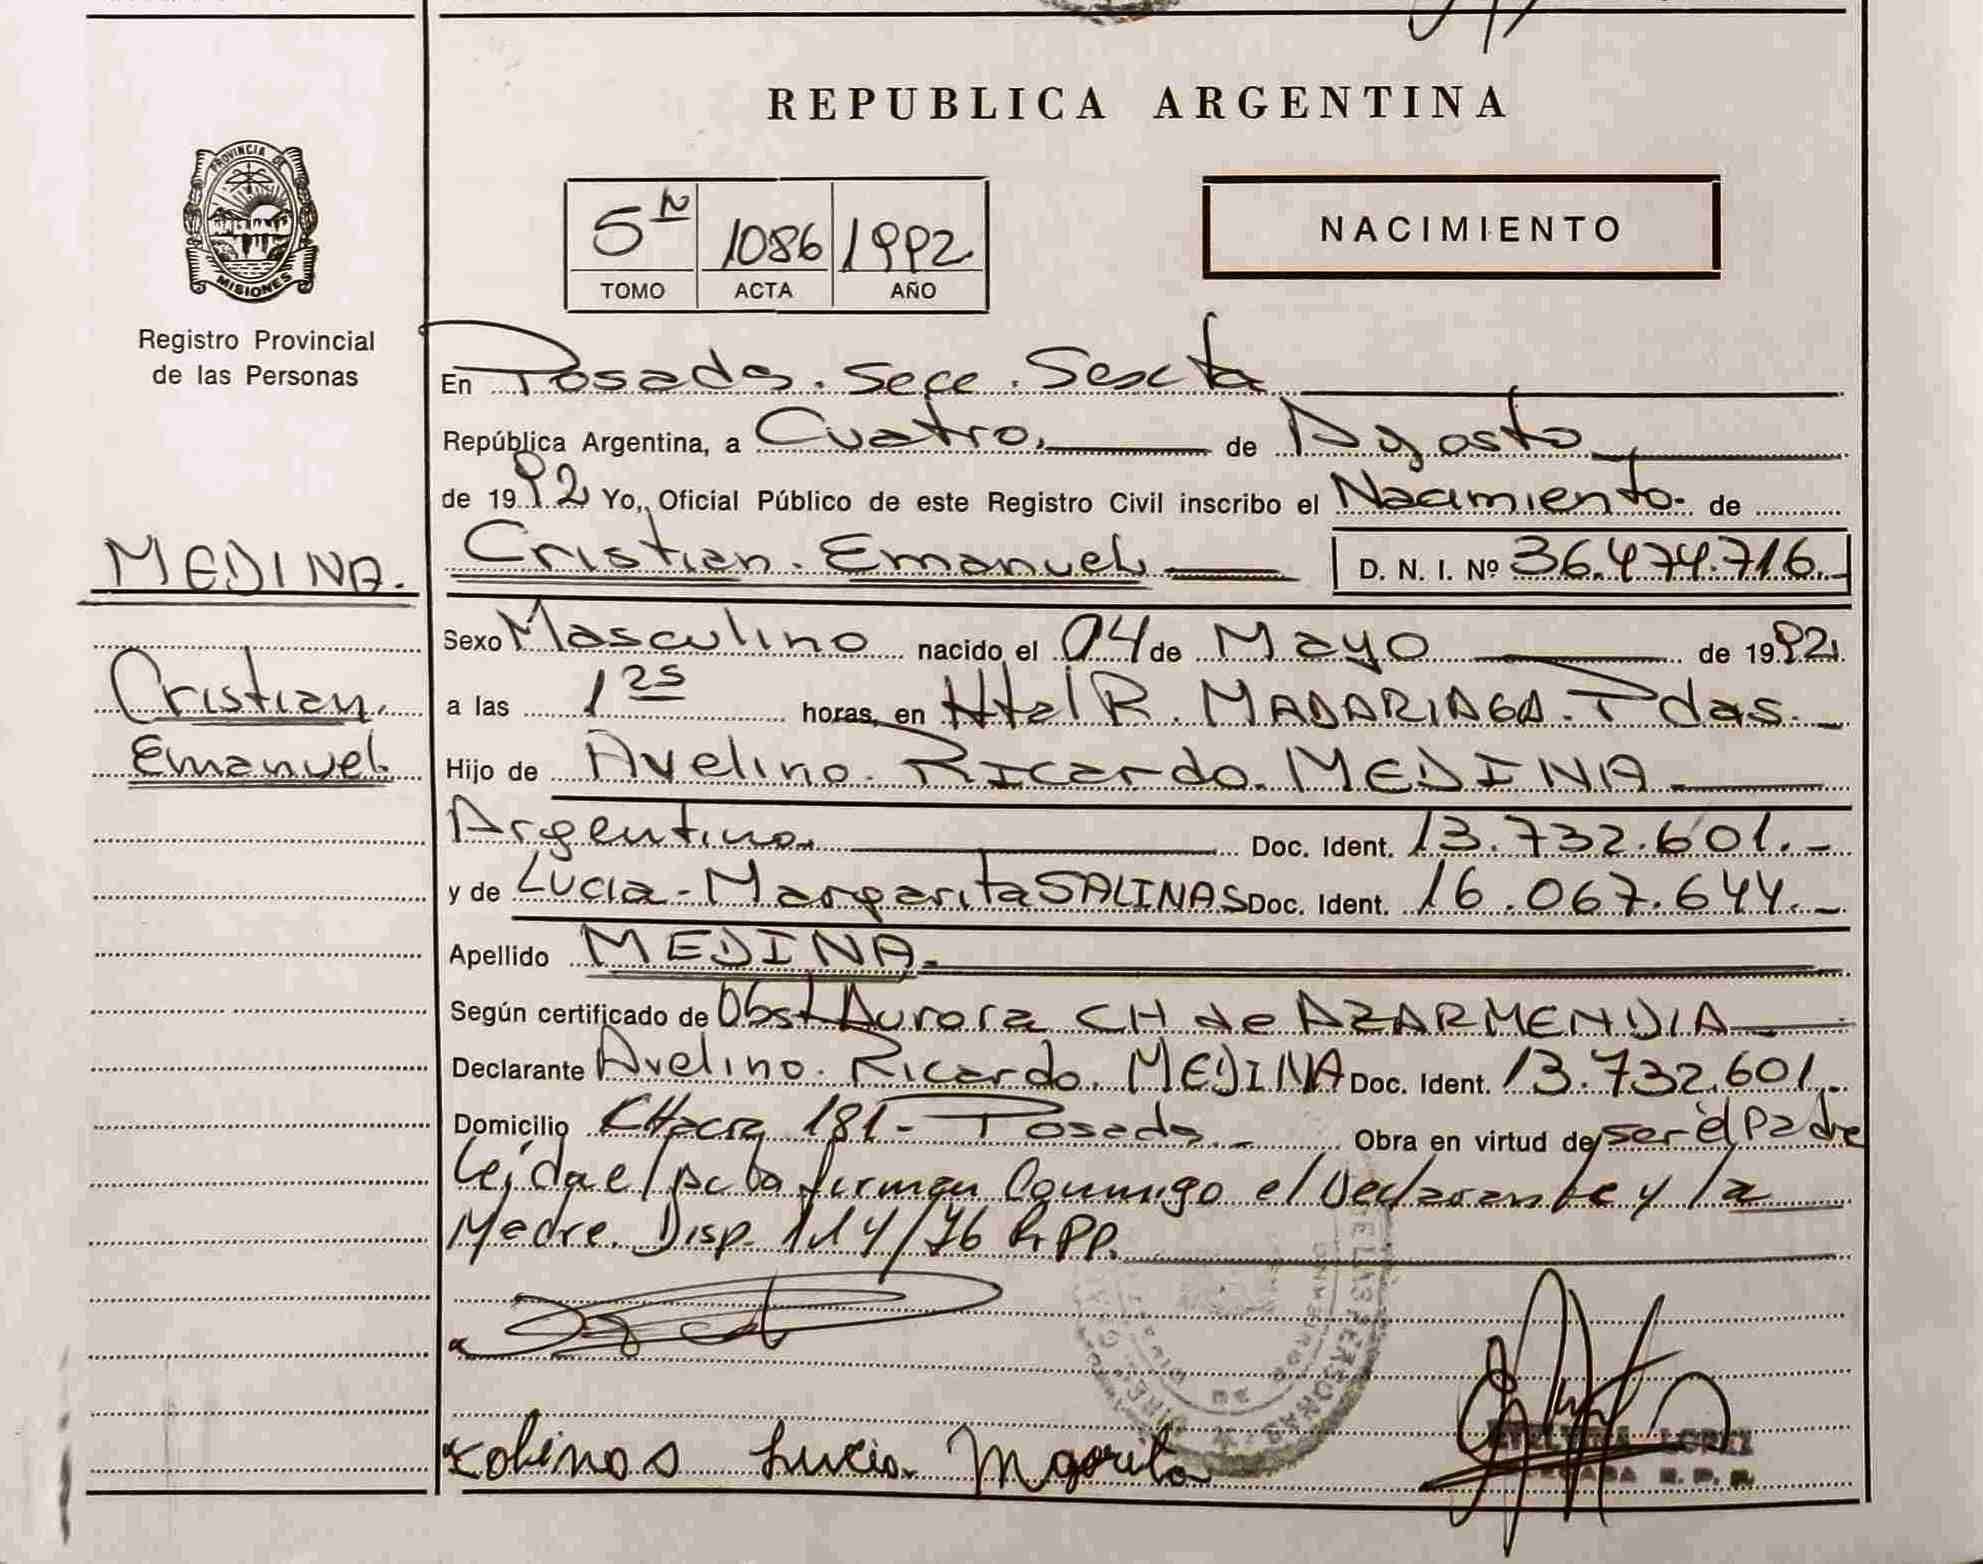 REPUBLICA ARGENTINA
PROVINCIA DE
MISIONES
Registro Provincial
de las Personas
5 N 1086 1992
TOMO ACTA AÑO
NACIMIENTO
En Posadas. Secc. Sexta
República Argentina, a Cuatro. de Agosto
de 1992 Yo, Oficial Público de este Registro Civil inscribo el Nacimiento. de
MEDINA.
Cristian. Emanuel. D. N. I. Nº 36.474.716.
Sexo Masculino nacido el 04 de Mayo de 1992
Cristian.
Emanuel.
a las 1 25 horas, en Htal R. MADARIAGA. Pdas.
Hijo de Avelino. Ricardo. MEDINA
Argentino. Doc. Ident. 13.732.601.
y de Lucia - Margarita SALINAS Doc. Ident. 16.067.644.
Apellido MEDINA.
Según certificado de Obst Aurora CH de AZARMENDIA
Declarante Avelino. Ricardo. MEDINA Doc. Ident. 13.732.601.
Domicilio CHacra 181 - Posadas. Obra en virtud de ser el padre
Leída el Acta firman Conmigo el Declarante y la
Madre. Disp. 114/76 R.PP.
PERSONAS
Lucia Mgarita
LOPEZ